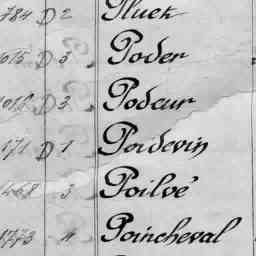 784 D 2 Pluck
1015 D 3 Poder
1016 D 3 Podeur
171 D 1 Poidevin
1468 3 Poilvé
1773 4 Poincheval